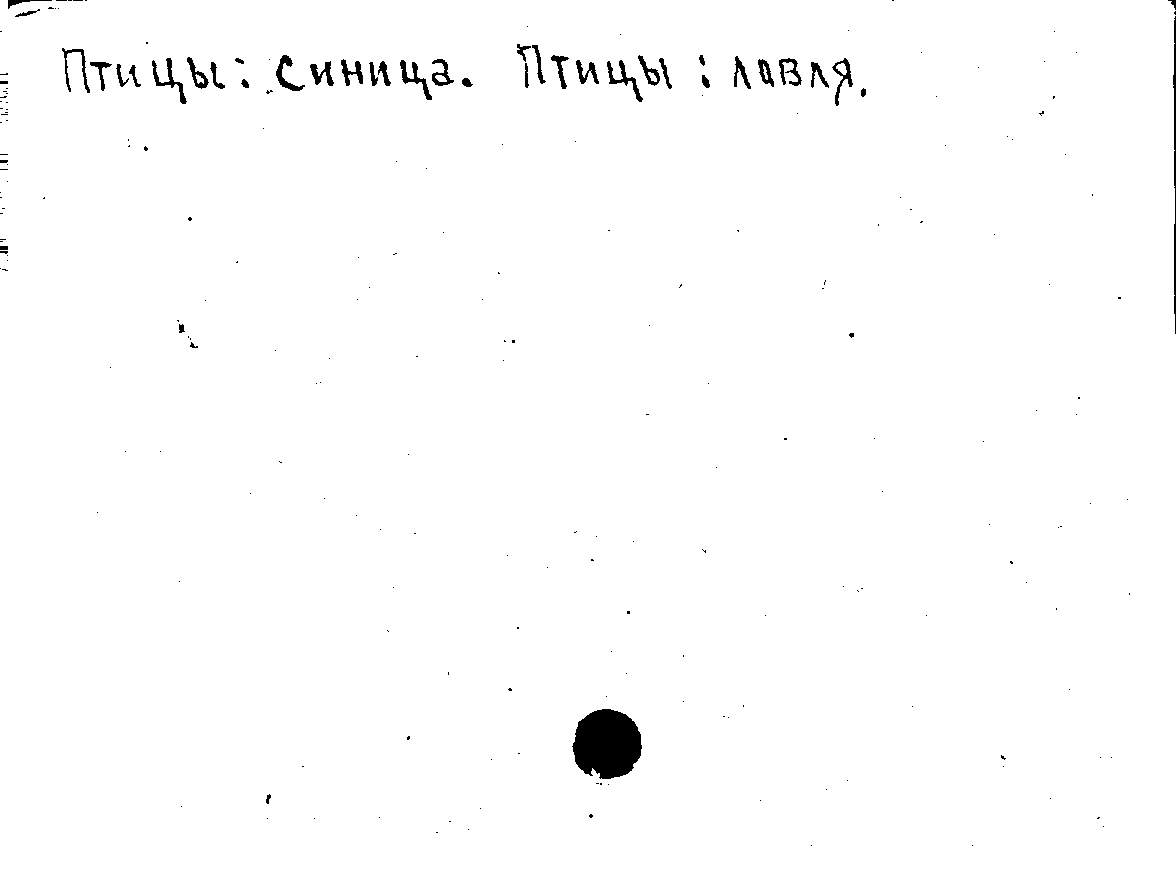 Птицы: синица. Птицы : ловля.